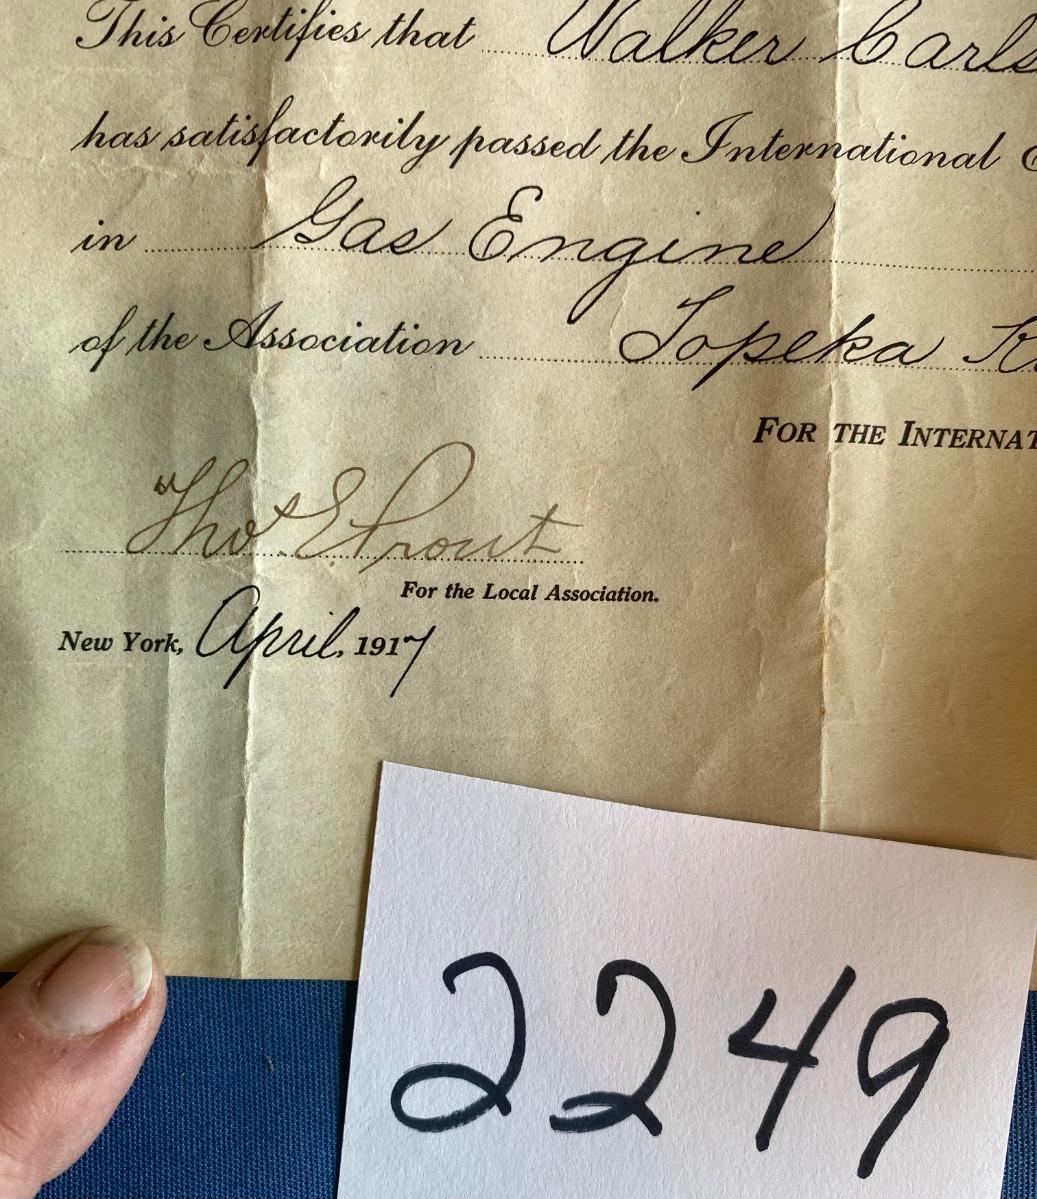 This Certifies that Walker Carls
has satisfactorily passed the International
in Gas Engine
of the Association Topeka
FOR THE INTERNAT
Thos. E. Prout
For the Local Association.
New York, April, 1917
2249